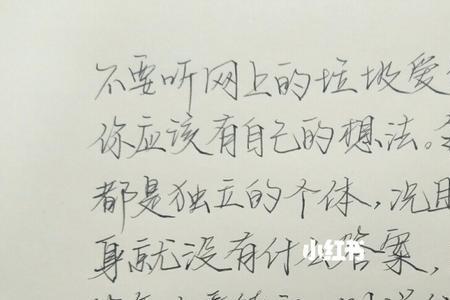 不要听网上的垃圾爱
你应该有自己的想法。
都是独立的个体,况且
身就没有什么答案,
小红书